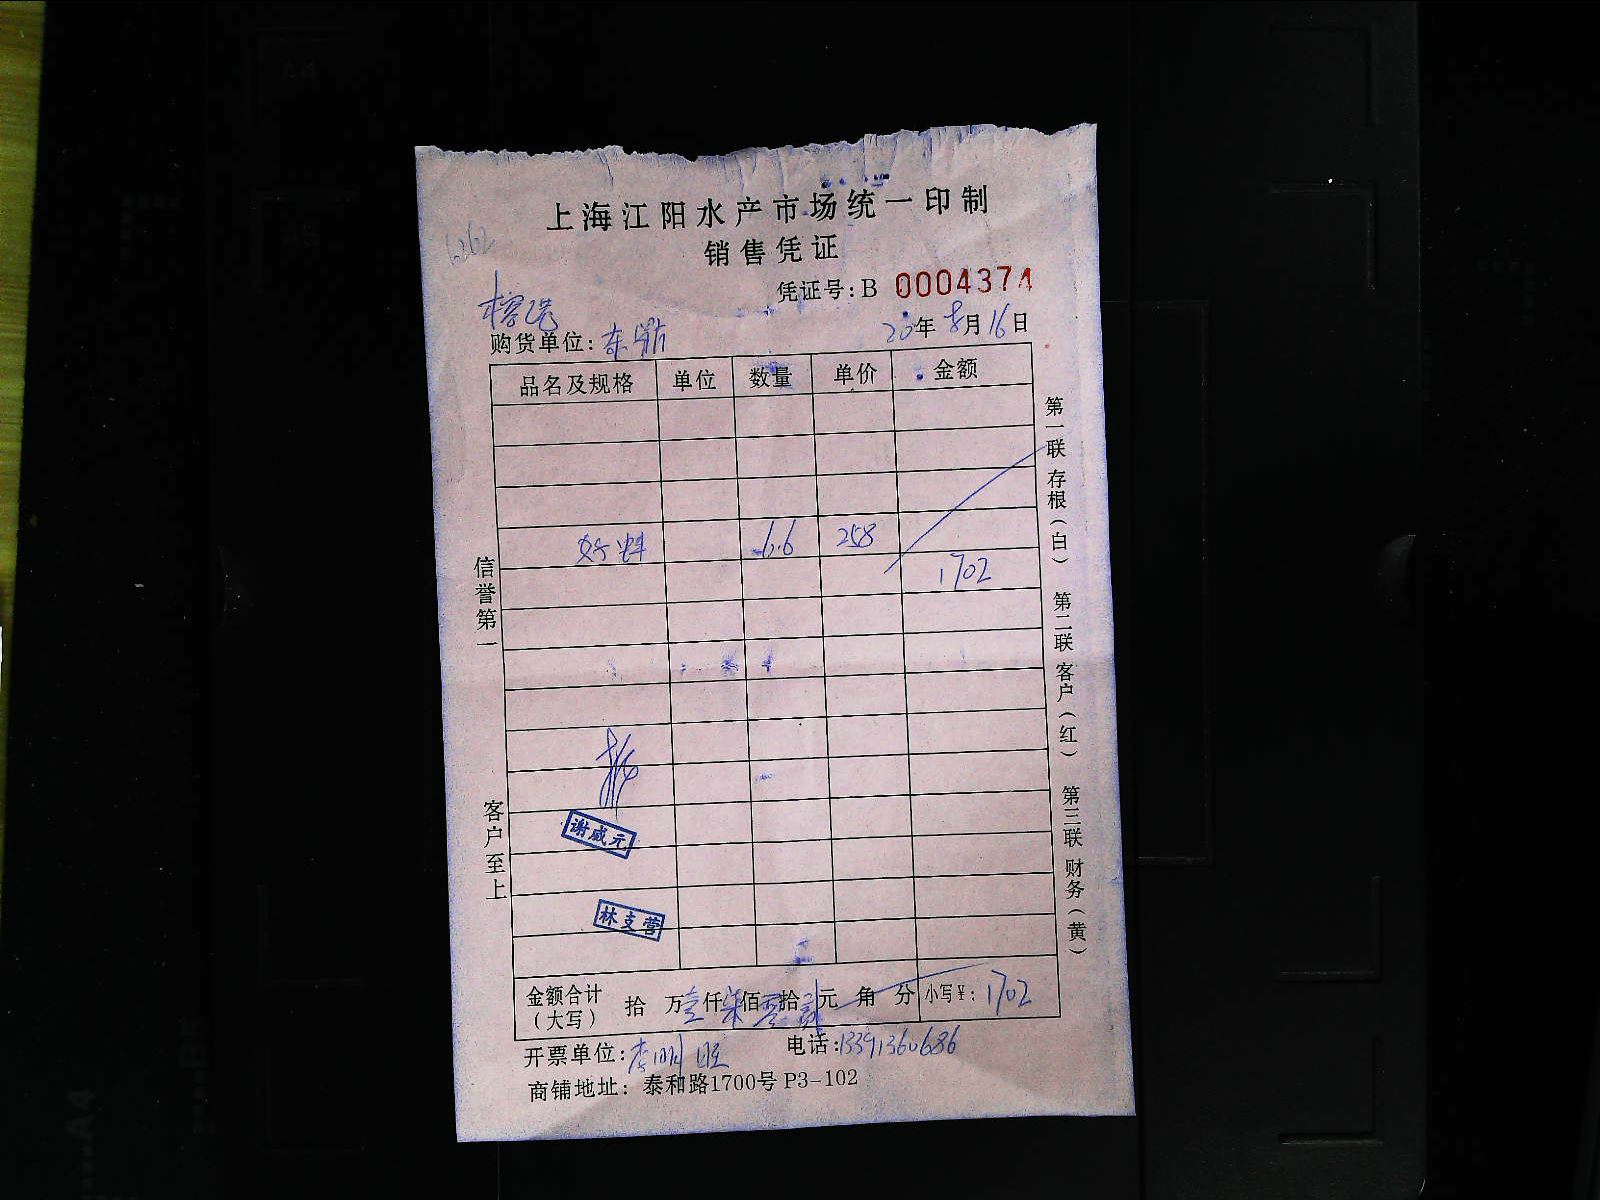 上海江阳水产市场统一印制
销售凭证
凭证号:B 0004374
购货单位:东鼎
20年8月16日
品名及规格 单位 数量 单价 金额
6.6 258
1702
谢威元
林支营
金额合计(大写) 拾 万壹仟柒佰零拾贰元 角 分 小写¥:1702
开票单位:李明旺 电话:13391360686
商铺地址: 泰和路1700号 P3-102
信誉第一 客户至上
第一联 存根(白) 第二联 客户(红) 第三联 财务(黄)